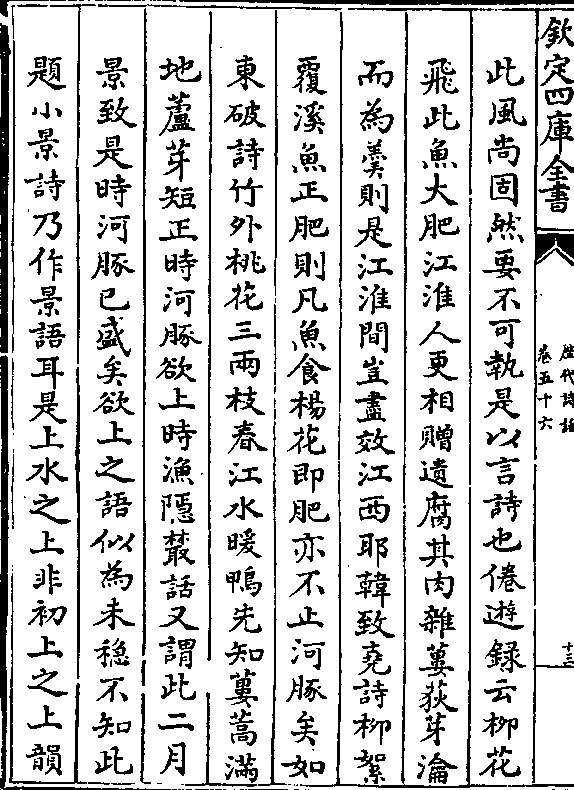 欽定四庫全書
歴代詩話
卷五十六
十三
此風尚固然要不可執是以言詩也倦遊録云柳花
飛此魚大肥江淮人更相贈遺腐其肉雜蔞荻芽瀹
而為羮則是江淮間豈盡效江西耶韓致堯詩柳絮
覆溪魚正肥則凡魚食楊花即肥亦不止河豚矣如
東破詩竹外桃花三兩枝春江水暖鴨先知蔞蒿滿
地蘆芽短正時河豚欲上時漁隱叢話又謂此二月
景致是時河豚已盛矣欲上之語似為未穏不知此
題小景詩乃作景語耳是上水之上非初上之上韻